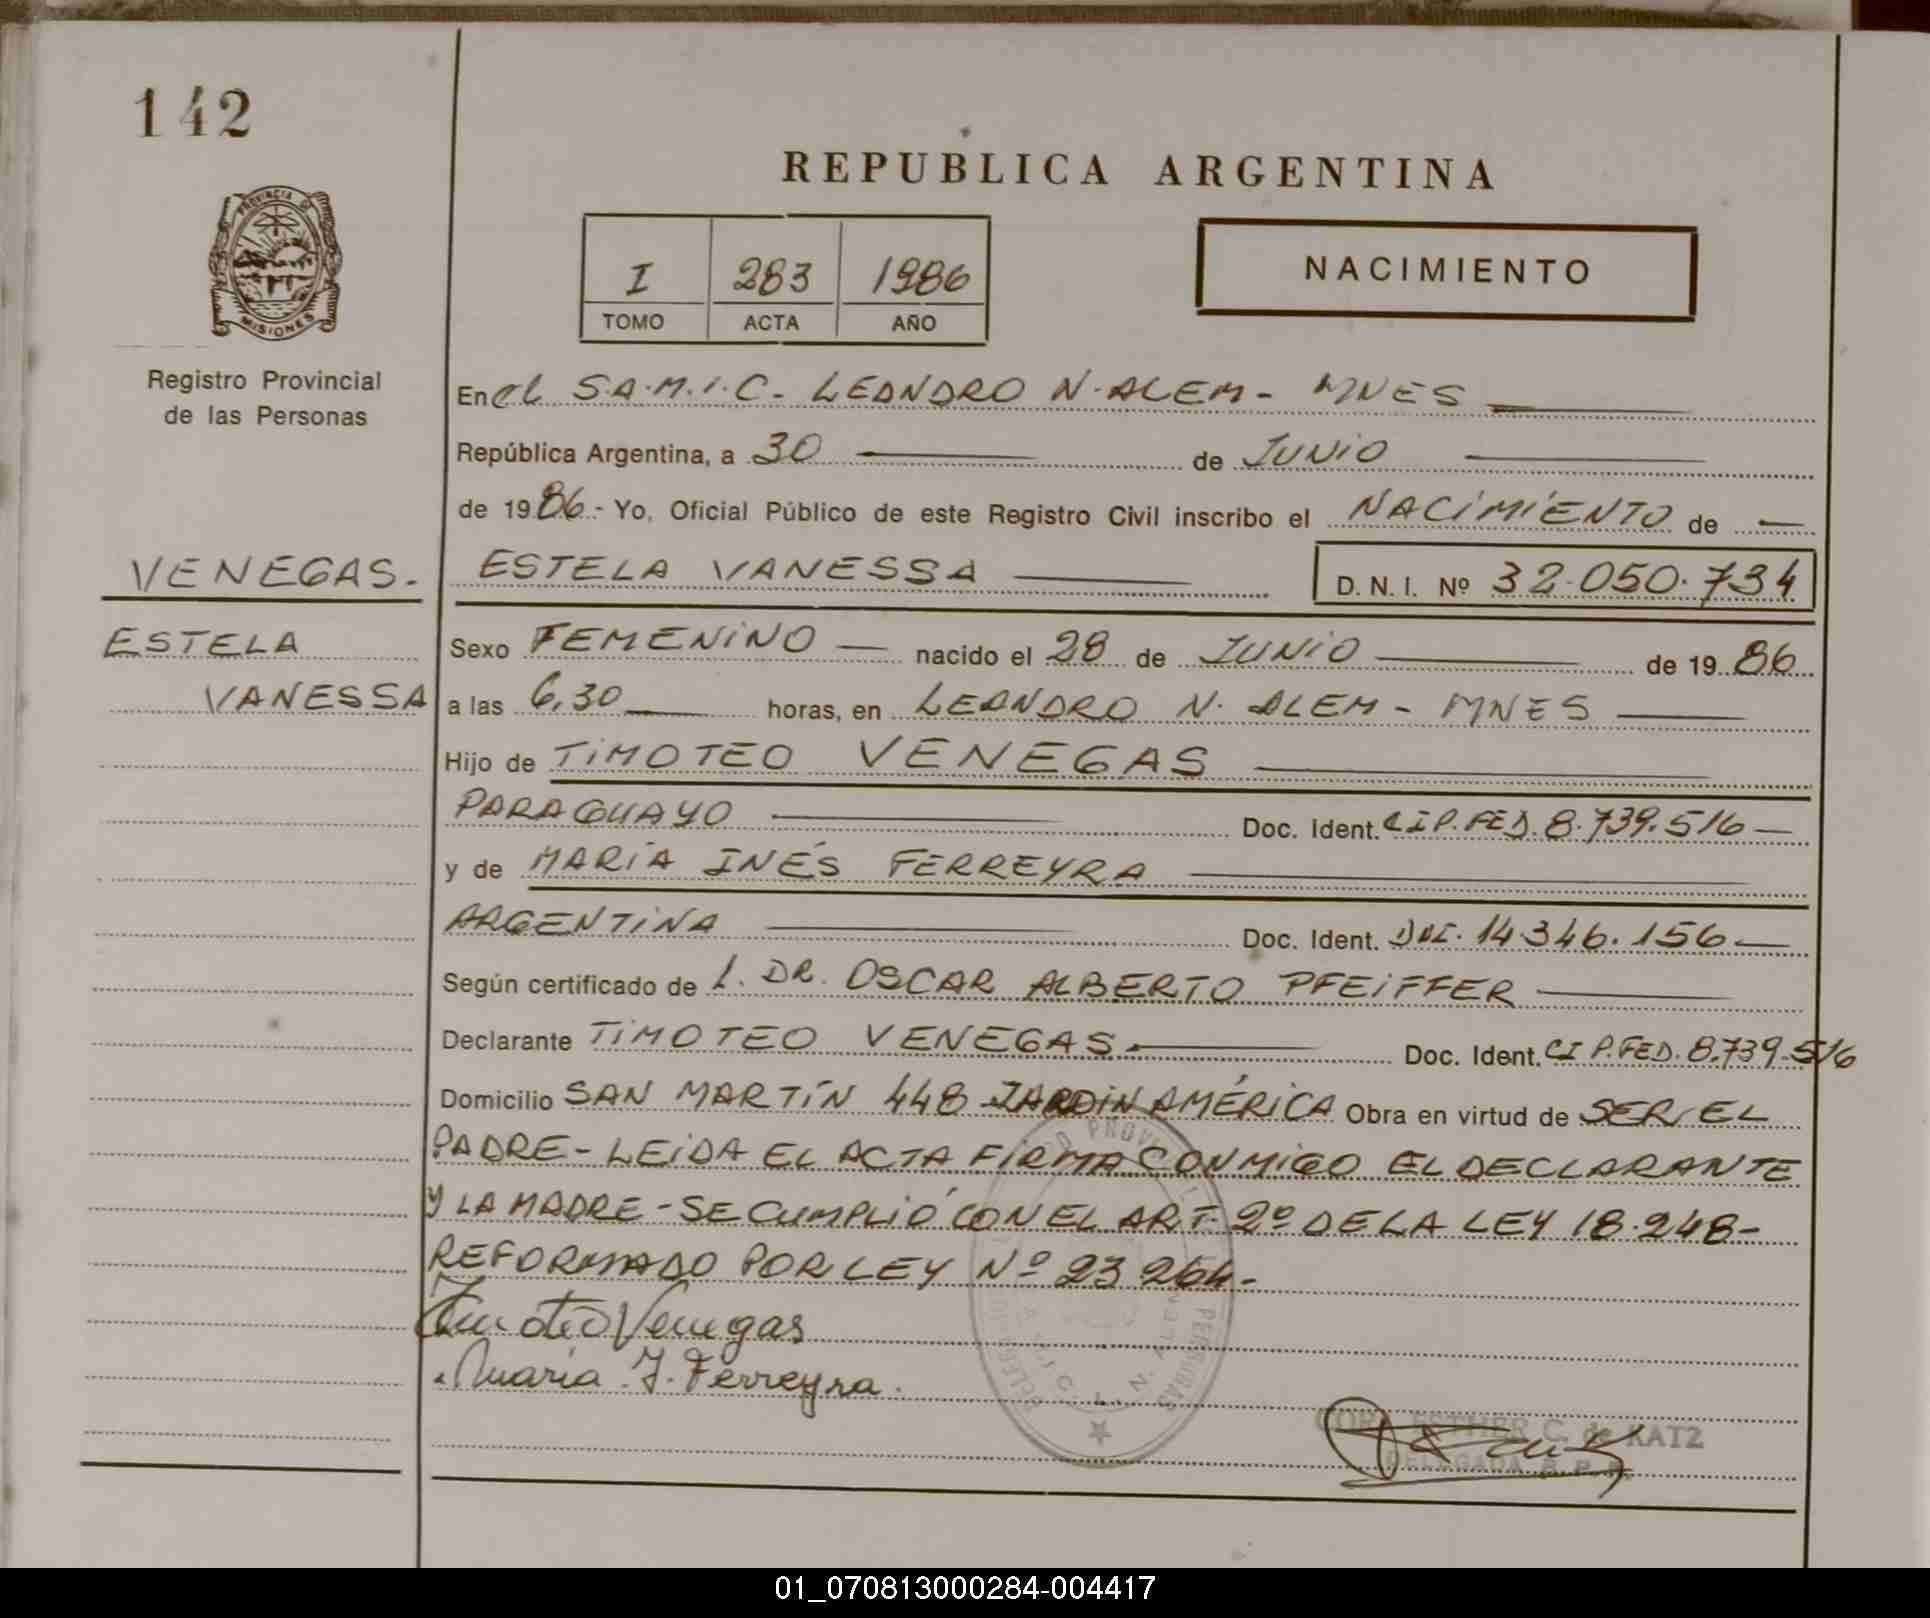 142
REPUBLICA ARGENTINA
PROVINCIA DE
MISIONES
I 283 1986
TOMO ACTA AÑO
NACIMIENTO
Registro Provincial
de las Personas
En el S.A.M.I.C. LEANDRO N. ALEM - MNES
República Argentina, a 30 de JUNIO
de 1986.- Yo, Oficial Público de este Registro Civil inscribo el NACIMIENTO de
VENEGAS. ESTELA VANESSA D. N. I. Nº 32.050.734
ESTELA Sexo FEMENINO nacido el 28 de JUNIO de 1986
VANESSA a las 6,30 horas, en LEANDRO N. ALEM - MNES
Hijo de TIMOTEO VENEGAS
PARAGUAYO Doc. Ident. CI P. FED. 8.739.516
y de MARÍA INÉS FERREYRA
ARGENTINA Doc. Ident. DNI. 14.346.156
Según certificado de L. DR. OSCAR ALBERTO PFEIFFER
Declarante TIMOTEO VENEGAS. Doc. Ident. CI P. FED. 8.739.516
Domicilio SAN MARTÍN 448 JARDIN AMÉRICA Obra en virtud de SER EL
PADRE - LEIDA EL ACTA FIRMA CONMIGO EL DECLARANTE
Y LA MADRE - SE CUMPLIÓ CON EL ART. 2º DE LA LEY 18.248 -
REFORMADO POR LEY Nº 23.264.-
Timoteo Venegas
Maria I. Ferreyra.
ESTHER C. de KATZ
DELEGADA R. P. P.
01_070813000284-004417